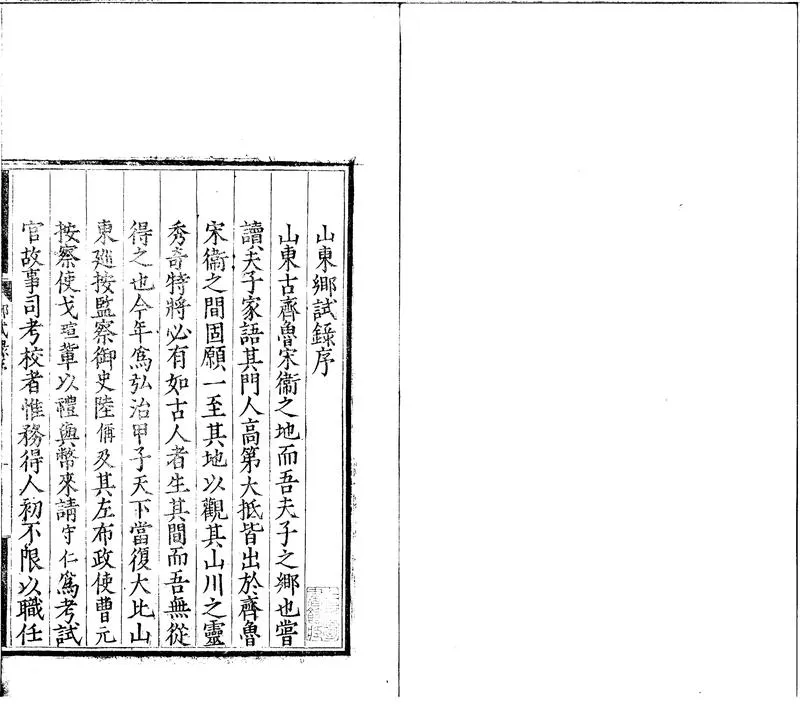 山東鄉試錄序
山東古齊魯宋衞之地而吾夫子之鄉也嘗
讀夫子家語其門人高第大抵皆出於齊魯
宋衞之間固願一至其地以觀其山川之靈
秀奇特將必有如古人者生其間而吾無從
得之也今年爲弘治甲子天下當復大比山
東廵按監察御史陸偁及其左布政使曹元
按察使戈瑄輩以禮與幣來請守仁爲考試
官故事司考校者惟務得人初不限以職任